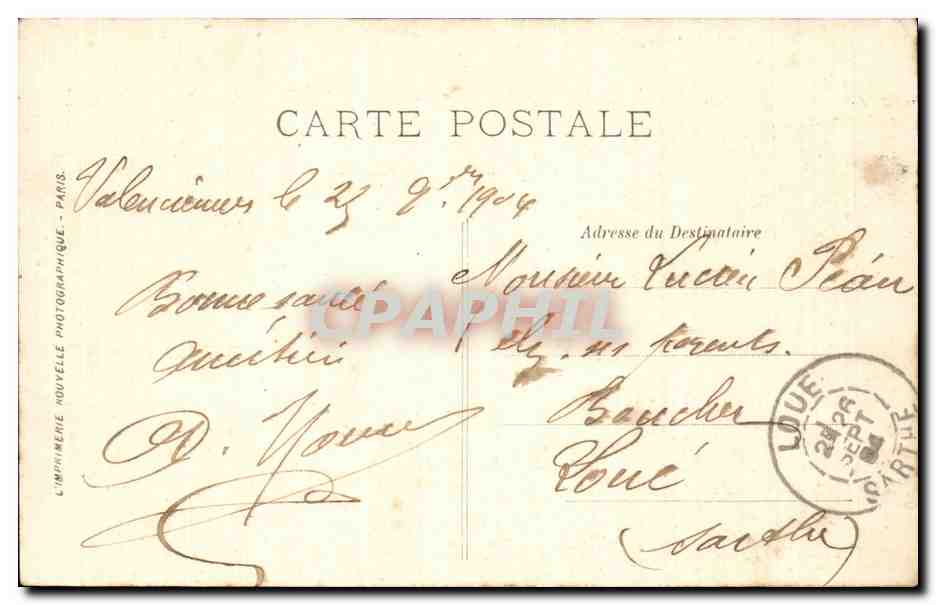 CARTE POSTALE
Valenciennes le 25 9bre 1904
Adresse du Destinataire
Bonne santé
Monsieur Lucien Péan
chz. ses parents.
Boucher
Loué
(Sarthe)
LOUÉ
26
SEPT
04
SARTHE
L'IMPRIMERIE NOUVELLE PHOTOGRAPHIQUE. - PARIS.
CPAPHIL